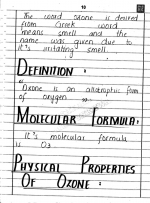 10
The word ozone is desired
from Greek word
means smell and the
name was given due to
it's irritating smell.
DEFINITION :
"Ozone is an allotropic form
of oxygen"
MOLECULAR FORMULA:
It's molecular formula
is O3
PHYSICAL PROPERTIES
OF OZONE :